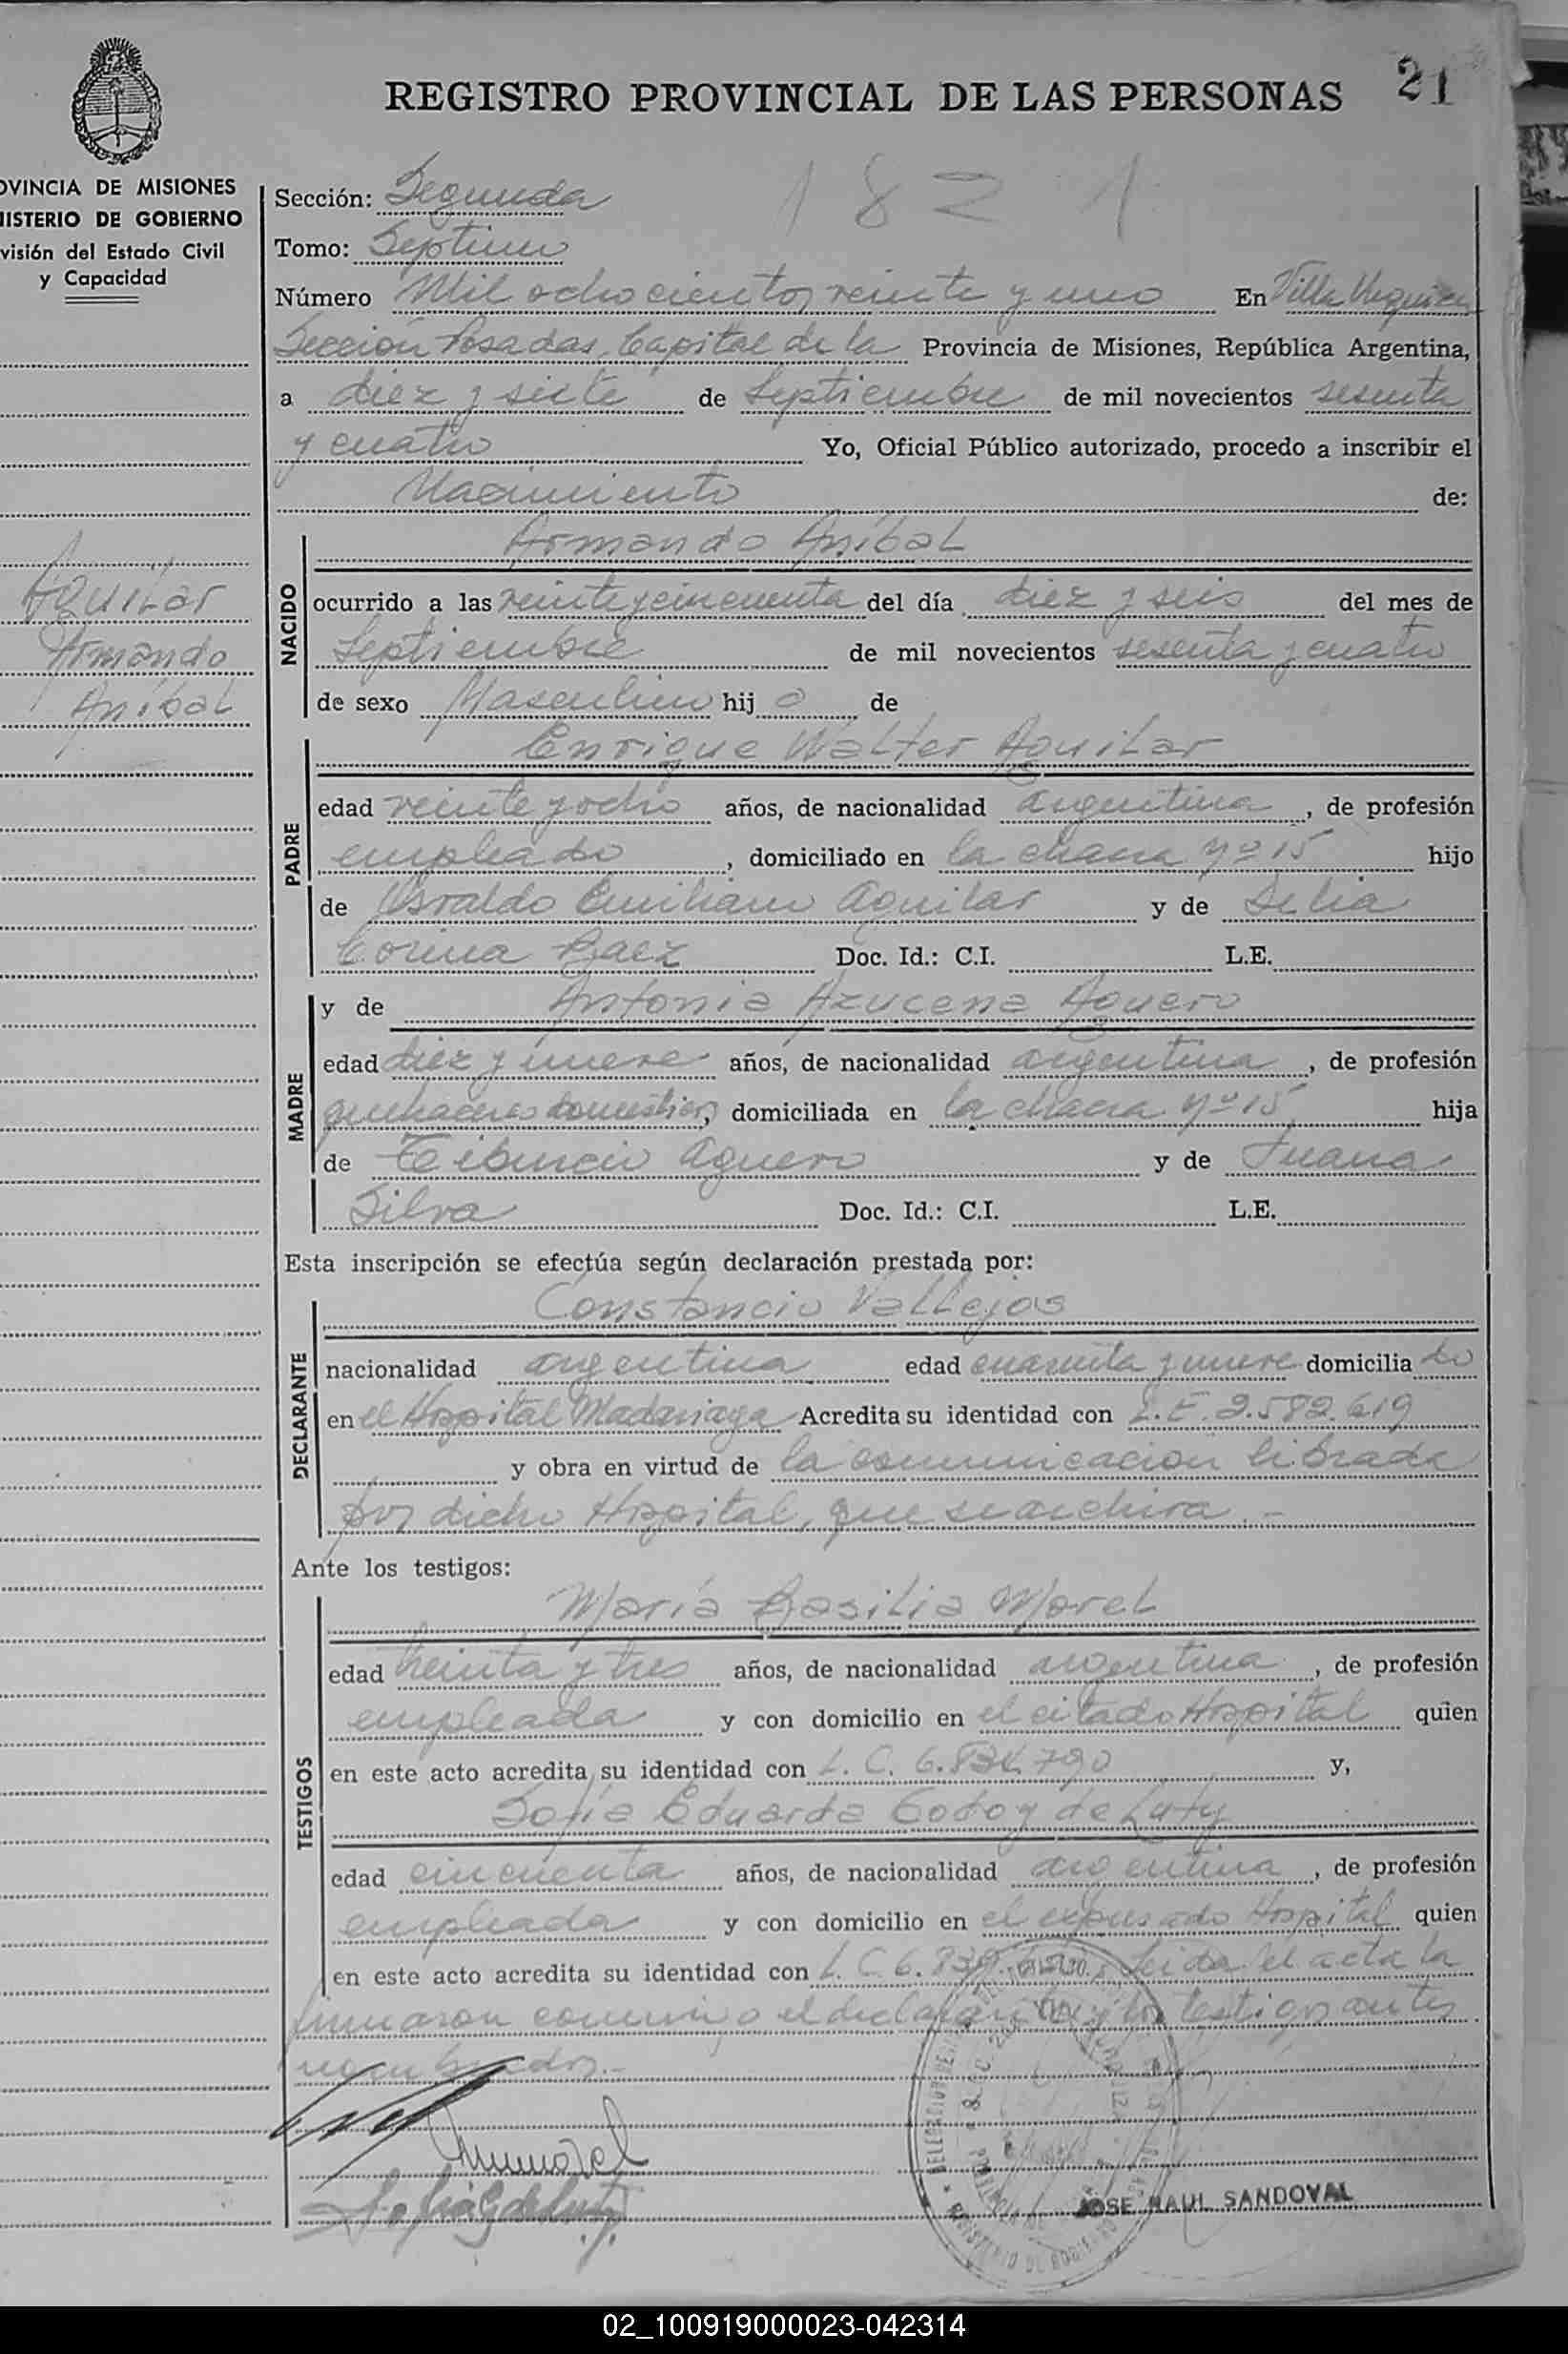 REGISTRO PROVINCIAL DE LAS PERSONAS 21
OVINCIA DE MISIONES
NISTERIO DE GOBIERNO
visión del Estado Civil
y Capacidad
Aguilar
Armando
Aníbal
1821
Sección: Segunda
Tomo: Septimo
Número Mil ochocientos veinte y uno En Villa Urquiza
Sección Posadas, Capital de la Provincia de Misiones, República Argentina,
a diez y siete de Septiembre de mil novecientos sesenta
y cuatro Yo, Oficial Público autorizado, procedo a inscribir el
Nacimiento de:
NACIDO
Armando Aníbal
ocurrido a las veinte y cincuenta del día diez y seis del mes de
Septiembre de mil novecientos sesenta y cuatro
de sexo Masculino hijo de
PADRE
Enrique Walter Aguilar
edad veinte y ocho años, de nacionalidad argentina, de profesión
empleado, domiciliado en la chacra Nº 15 hijo
de Osvaldo Emiliano Aguilar y de Delia
Corina Baez Doc. Id.: C.I. L.E.
MADRE
y de Antonia Azucena Aguero
edad diez y nueve años, de nacionalidad argentina, de profesión
quehaceres domesticos, domiciliada en la chacra Nº 15 hija
de Tiburcio Aguero y de Juana
Silva Doc. Id.: C.I. L.E.
Esta inscripción se efectúa según declaración prestada por:
DECLARANTE
Constancio Vallejos
nacionalidad argentina edad cuarenta y nueve domiciliado
en el Hospital Madariaga Acredita su identidad con L.E. 2.582.619
y obra en virtud de la comunicación librada
por dicho Hospital, que se archiva.-
Ante los testigos:
TESTIGOS
María Basilia Morel
edad treinta y tres años, de nacionalidad argentina, de profesión
empleada y con domicilio en el citado Hospital quien
en este acto acredita su identidad con L. C. 6. 790 y,
Sofía Eduarda Godoy de Luty
edad cincuenta años, de nacionalidad argentina, de profesión
empleada y con domicilio en el expresado Hospital quien
en este acto acredita su identidad con L. C. 6. Leida el acta la
firmaron conmigo el declarante y los testigos antes
nombrados.-
JOSE RAUL SANDOVAL
02_100919000023-042314